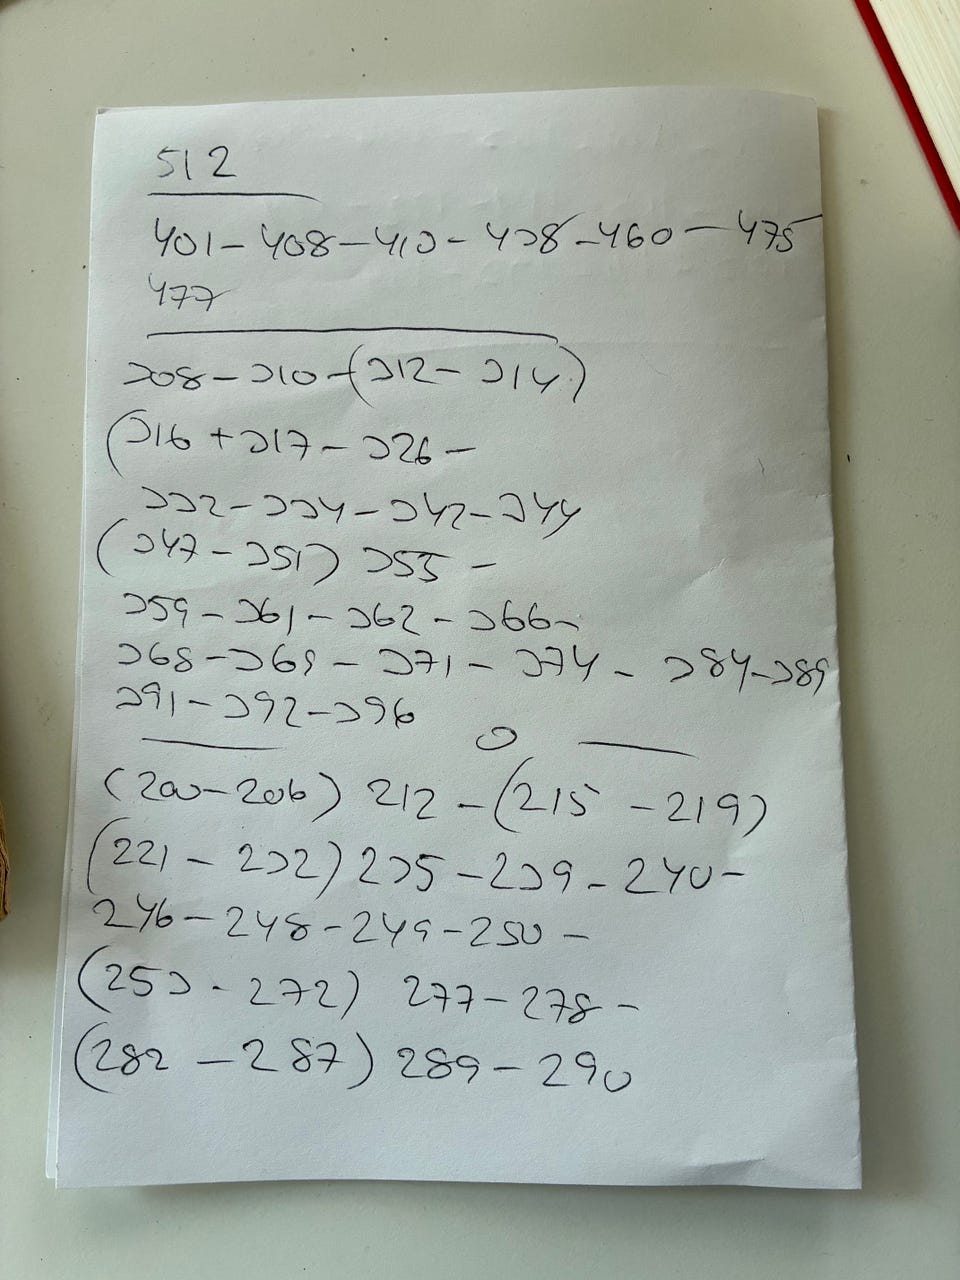 512
401 - 408 - 413 - 438 - 460 - 475
477
308 - 310 - (312 - 314)
(316 + 317 - 326 -
332 - 334 - 342 - 344
(347 - 351) 355 -
359 - 361 - 362 - 366 -
368 - 369 - 371 - 374 - 384 - 389
391 - 392 - 396
(200 - 206) 212 - (215 - 219)
(221 - 232) 235 - 239 - 240 -
246 - 248 - 249 - 250 -
(253 - 272) 277 - 278 -
(282 - 287) 289 - 290